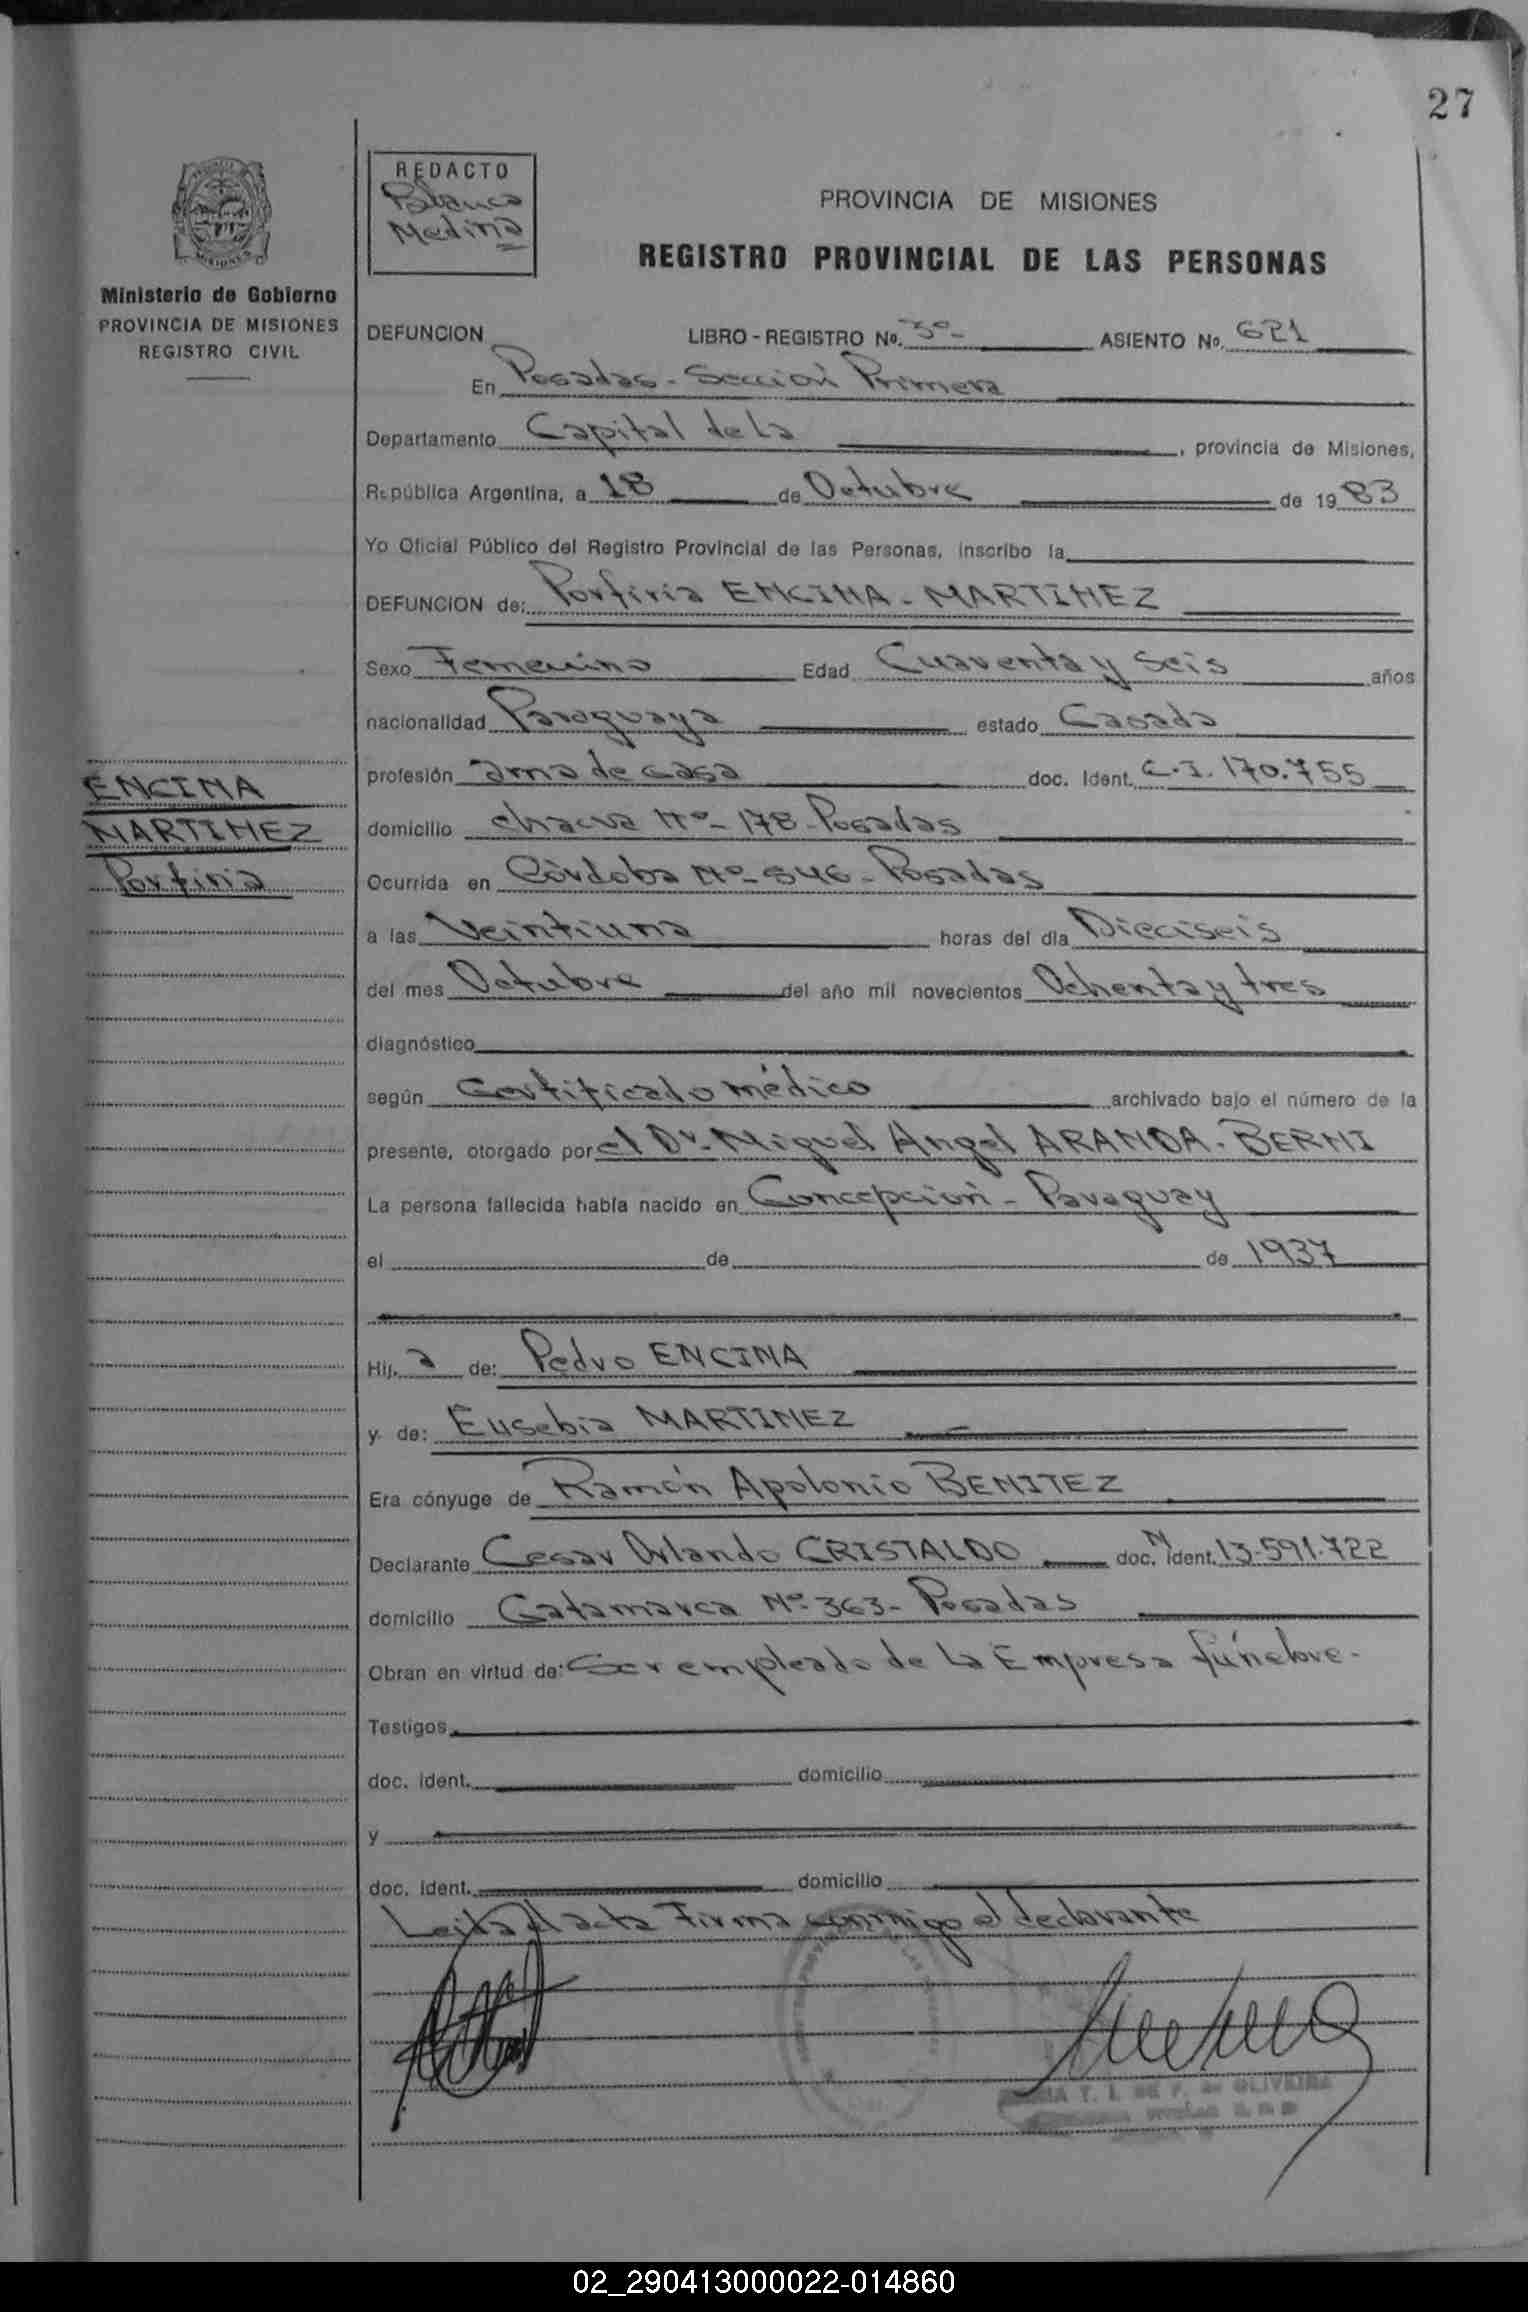 27
REDACTO
Blanca
Medina
PROVINCIA DE MISIONES
REGISTRO PROVINCIAL DE LAS PERSONAS
Ministerio de Gobierno
PROVINCIA DE MISIONES
REGISTRO CIVIL
DEFUNCION LIBRO - REGISTRO No. 3º- ASIENTO No. 621
En Posadas - Sección Primera
Departamento Capital de la , provincia de Misiones,
República Argentina, a 18 de Octubre de 1983
Yo Oficial Público del Registro Provincial de las Personas, inscribo la
DEFUNCION de: Porfiria ENCINA - MARTINEZ
Sexo Femenino Edad Cuarenta y Seis años
nacionalidad Paraguaya estado Casada
ENCINA
MARTINEZ
Porfiria
profesión ama de casa doc. Ident. C.I. 170.755
domicilio chacra Nº- 178 - Posadas
Ocurrida en Córdoba Nº- 546 - Posadas
a las Veintiuna horas del día Dieciseis
del mes Octubre del año mil novecientos Ochenta y tres
diagnóstico
según Certificado médico archivado bajo el número de la
presente, otorgado por el Dr. Miguel Angel ARANDA - BERNI
La persona fallecida había nacido en Concepción - Paraguay
el de de 1937
Hij. a de: Pedro ENCINA
y de: Eusebia MARTINEZ
Era cónyuge de Ramón Apolonio BENITEZ
Declarante Cesar Orlando CRISTALDO doc. N Ident. 13.591.722
domicilio Catamarca Nº 363 - Posadas
Obran en virtud de: Ser empleado de la Empresa fúnebre.
Testigos
doc. ident. domicilio
y
doc. ident. domicilio
Leída el acta Firma conmigo el declarante
DE F. de OLIVEIRA
02_290413000022-014860